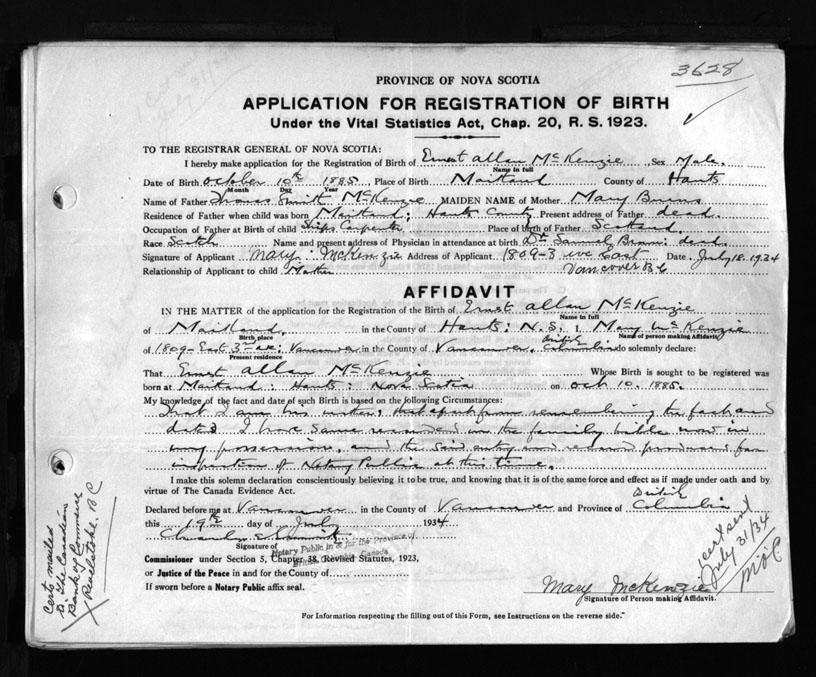 3628
PROVINCE OF NOVA SCOTIA
APPLICATION FOR REGISTRATION OF BIRTH
Under the Vital Statistics Act, Chap. 20, R. S. 1923.
TO THE REGISTRAR GENERAL OF NOVA SCOTIA:
I hereby make application for the Registration of Birth of Ernest Allan McKenzie Sex Male.
Name in full
Date of Birth October 10th 1885 Place of Birth Maitland County of Hants
Month Day Year
Name of Father Thomas Smith McKenzie MAIDEN NAME of Mother Mary Burns
Residence of Father when child was born Maitland; Hants County Present address of Father dead.
Occupation of Father at Birth of child Ships Carpenter Place of birth of Father Scotland.
Race Scotch Name and present address of Physician in attendance at birth Dr Samuel Brown: dead.
Signature of Applicant Mary McKenzie Address of Applicant 1809-3 ave East Date July 18. 1934
Relationship of Applicant to child Mother Vancouver B C
AFFIDAVIT
IN THE MATTER of the application for the Registration of the Birth of Ernest Allan McKenzie
Name in full
of Maitland, in the County of Hants: N. S. I, Mary McKenzie
Birth place Name of person making Affidavit
of 1809-East 3rd av: Vancouver in the County of Vancouver, British Columbia do solemnly declare:
Present residence
That Ernest Allan McKenzie Whose Birth is sought to be registered was
born at Maitland: Hants: Nova Scotia on Oct 10. 1885.
My knowledge of the fact and date of such Birth is based on the following Circumstances:
That I am his mother; that apart from remembering the fact and
date I have same recorded in the family bible now in
my possession, and the said entry and record produced for
inspection of Notary Public at this time.
I make this solemn declaration conscientiously believing it to be true, and knowing that it is of the same force and effect as if made under oath and by
virtue of The Canada Evidence Act.
Declared before me at Vancouver in the County of Vancouver and Province of British Columbia
this 19th day of July 1934
Signature of
Notary Public in & for the Province of
British Columbia, Canada
Commissioner under Section 5, Chapter 38, Revised Statutes, 1923,
or Justice of the Peace in and for the County of
If sworn before a Notary Public affix seal.
Mary McKenzie
Signature of Person making Affidavit.
For Information respecting the filling out of this Form, see Instructions on the reverse side."
Certs mailed
to The Canadian
Bank of Commerce
Revelstoke. BC
cert sent
July 31/34